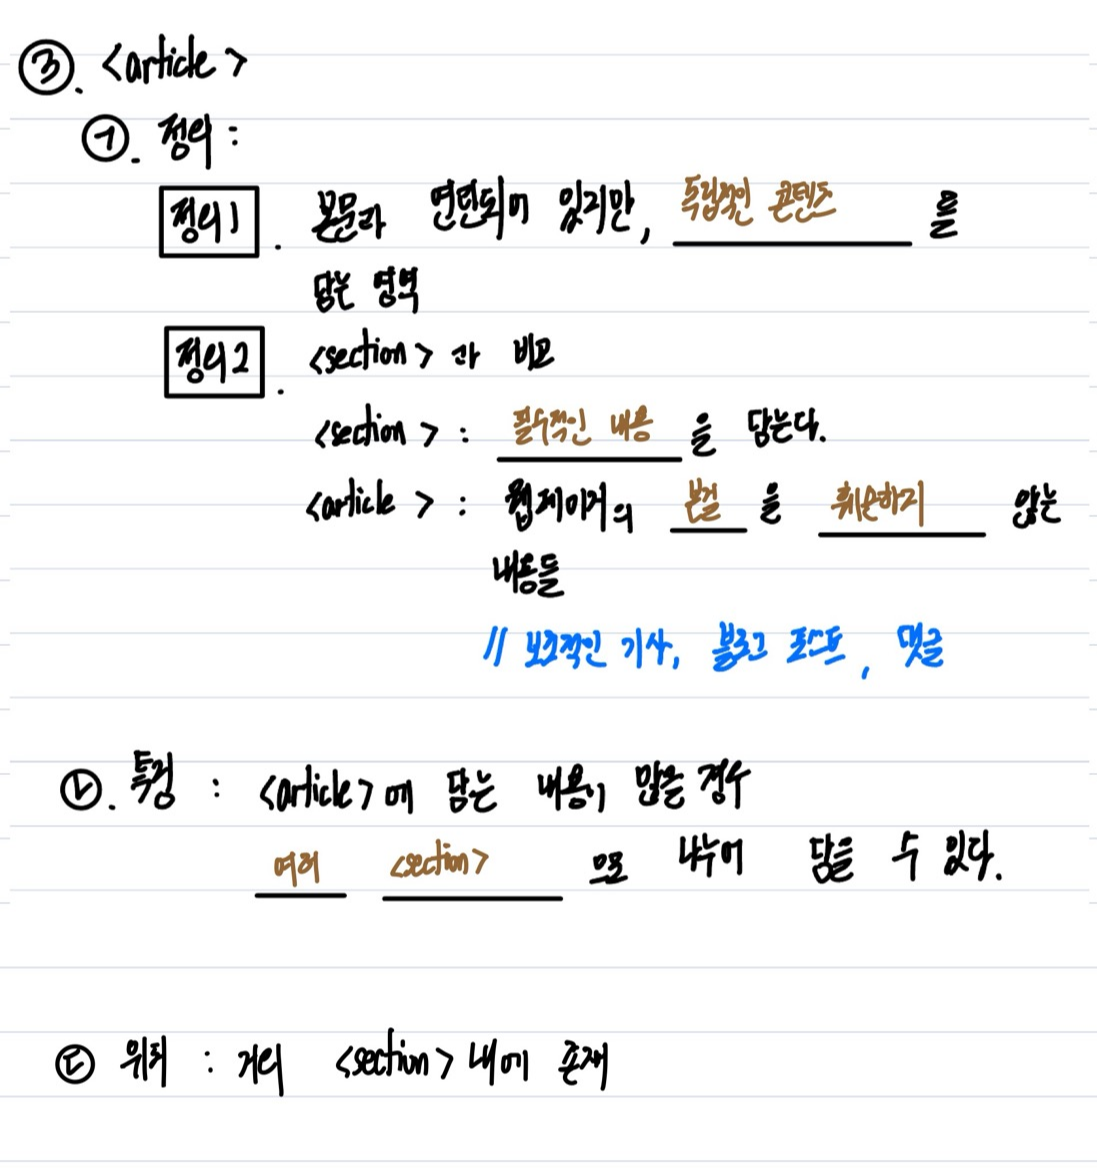 ③. <article>
㉠. 정의 :
정의1. 본문과 연관되어 있지만, 독립적인 콘텐츠 를
담는 영역
정의2. <section> 과 비교
<section> : 필수적인 내용 을 담는다.
<article> : 웹페이지의 본질 을 훼손하지 않는
내용들
// 보조적인 기사, 블로그 포스트, 댓글
㉡. 특징 : <article>에 담는 내용이 많을 경우
여러 <section> 으로 나누어 담을 수 있다.
㉢ 위치 : 거의 <section> 내에 존재